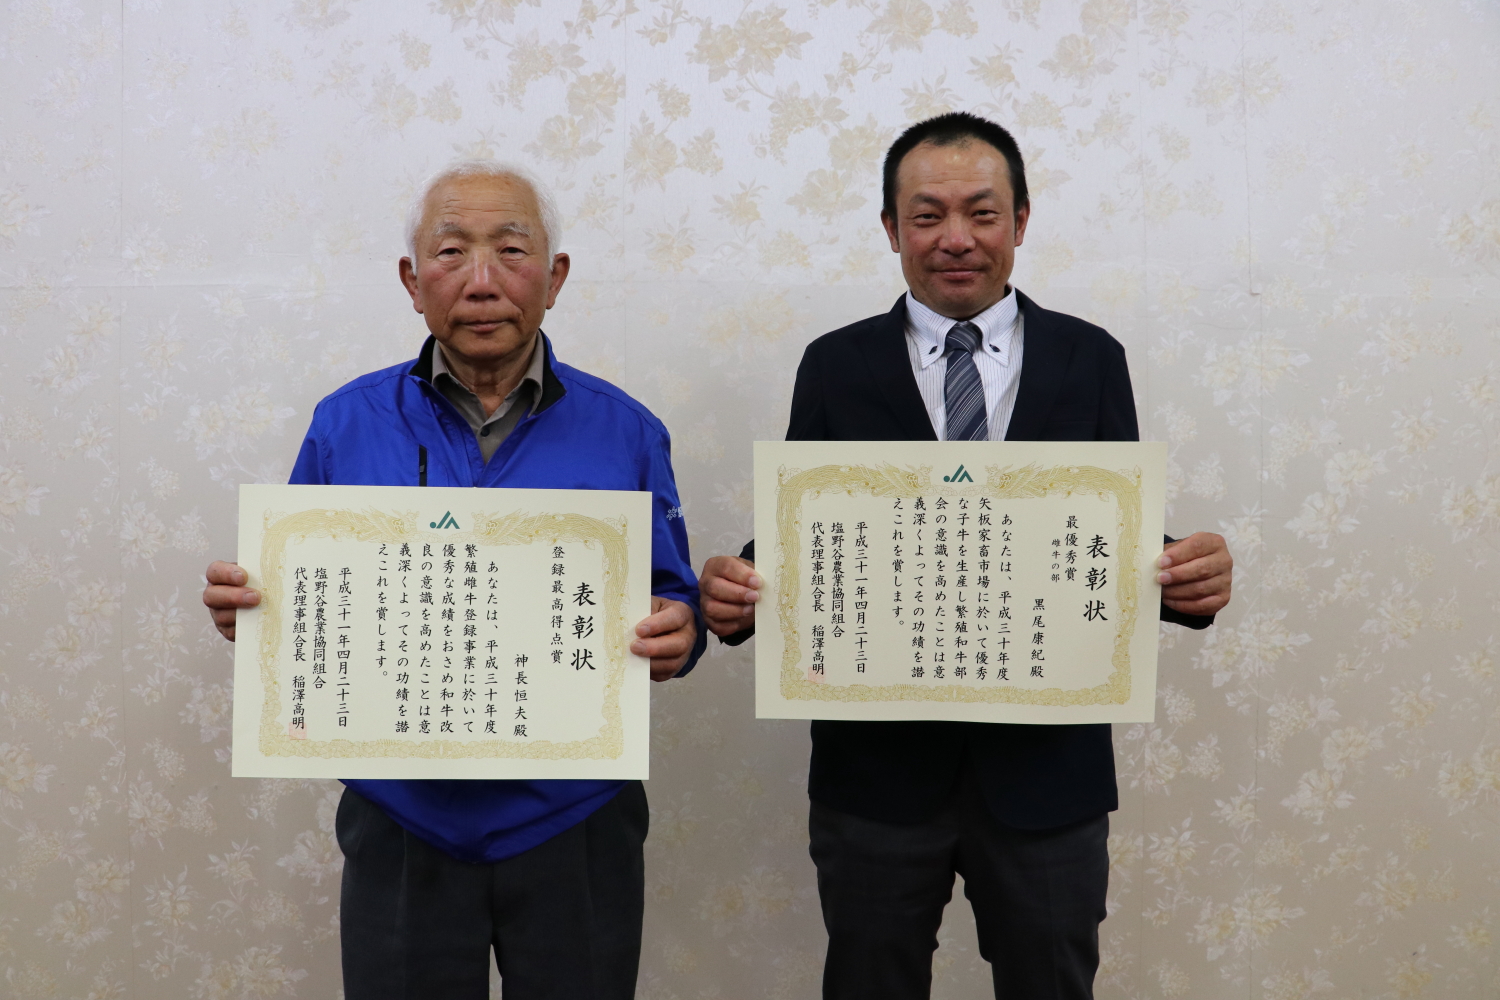 表彰状
登録最高得点賞
神長恒夫殿
あなたは、平成三十年度
繁殖雌牛登録事業に於いて
優秀な成績をおさめ和牛改
良の意識を高めたことは意
義深くよってその功績を讃
えこれを賞します。
平成三十一年四月二十三日
塩野谷農業協同組合
代表理事組合長 稲澤高明
表彰状
最優秀賞
雌牛の部
黒尾康紀殿
あなたは、平成三十年度
矢板家畜市場に於いて優秀
な子牛を生産し繁殖和牛部
会の意識を高めたことは意
義深くよってその功績を讃
えこれを賞します。
平成三十一年四月二十三日
塩野谷農業協同組合
代表理事組合長 稲澤高明